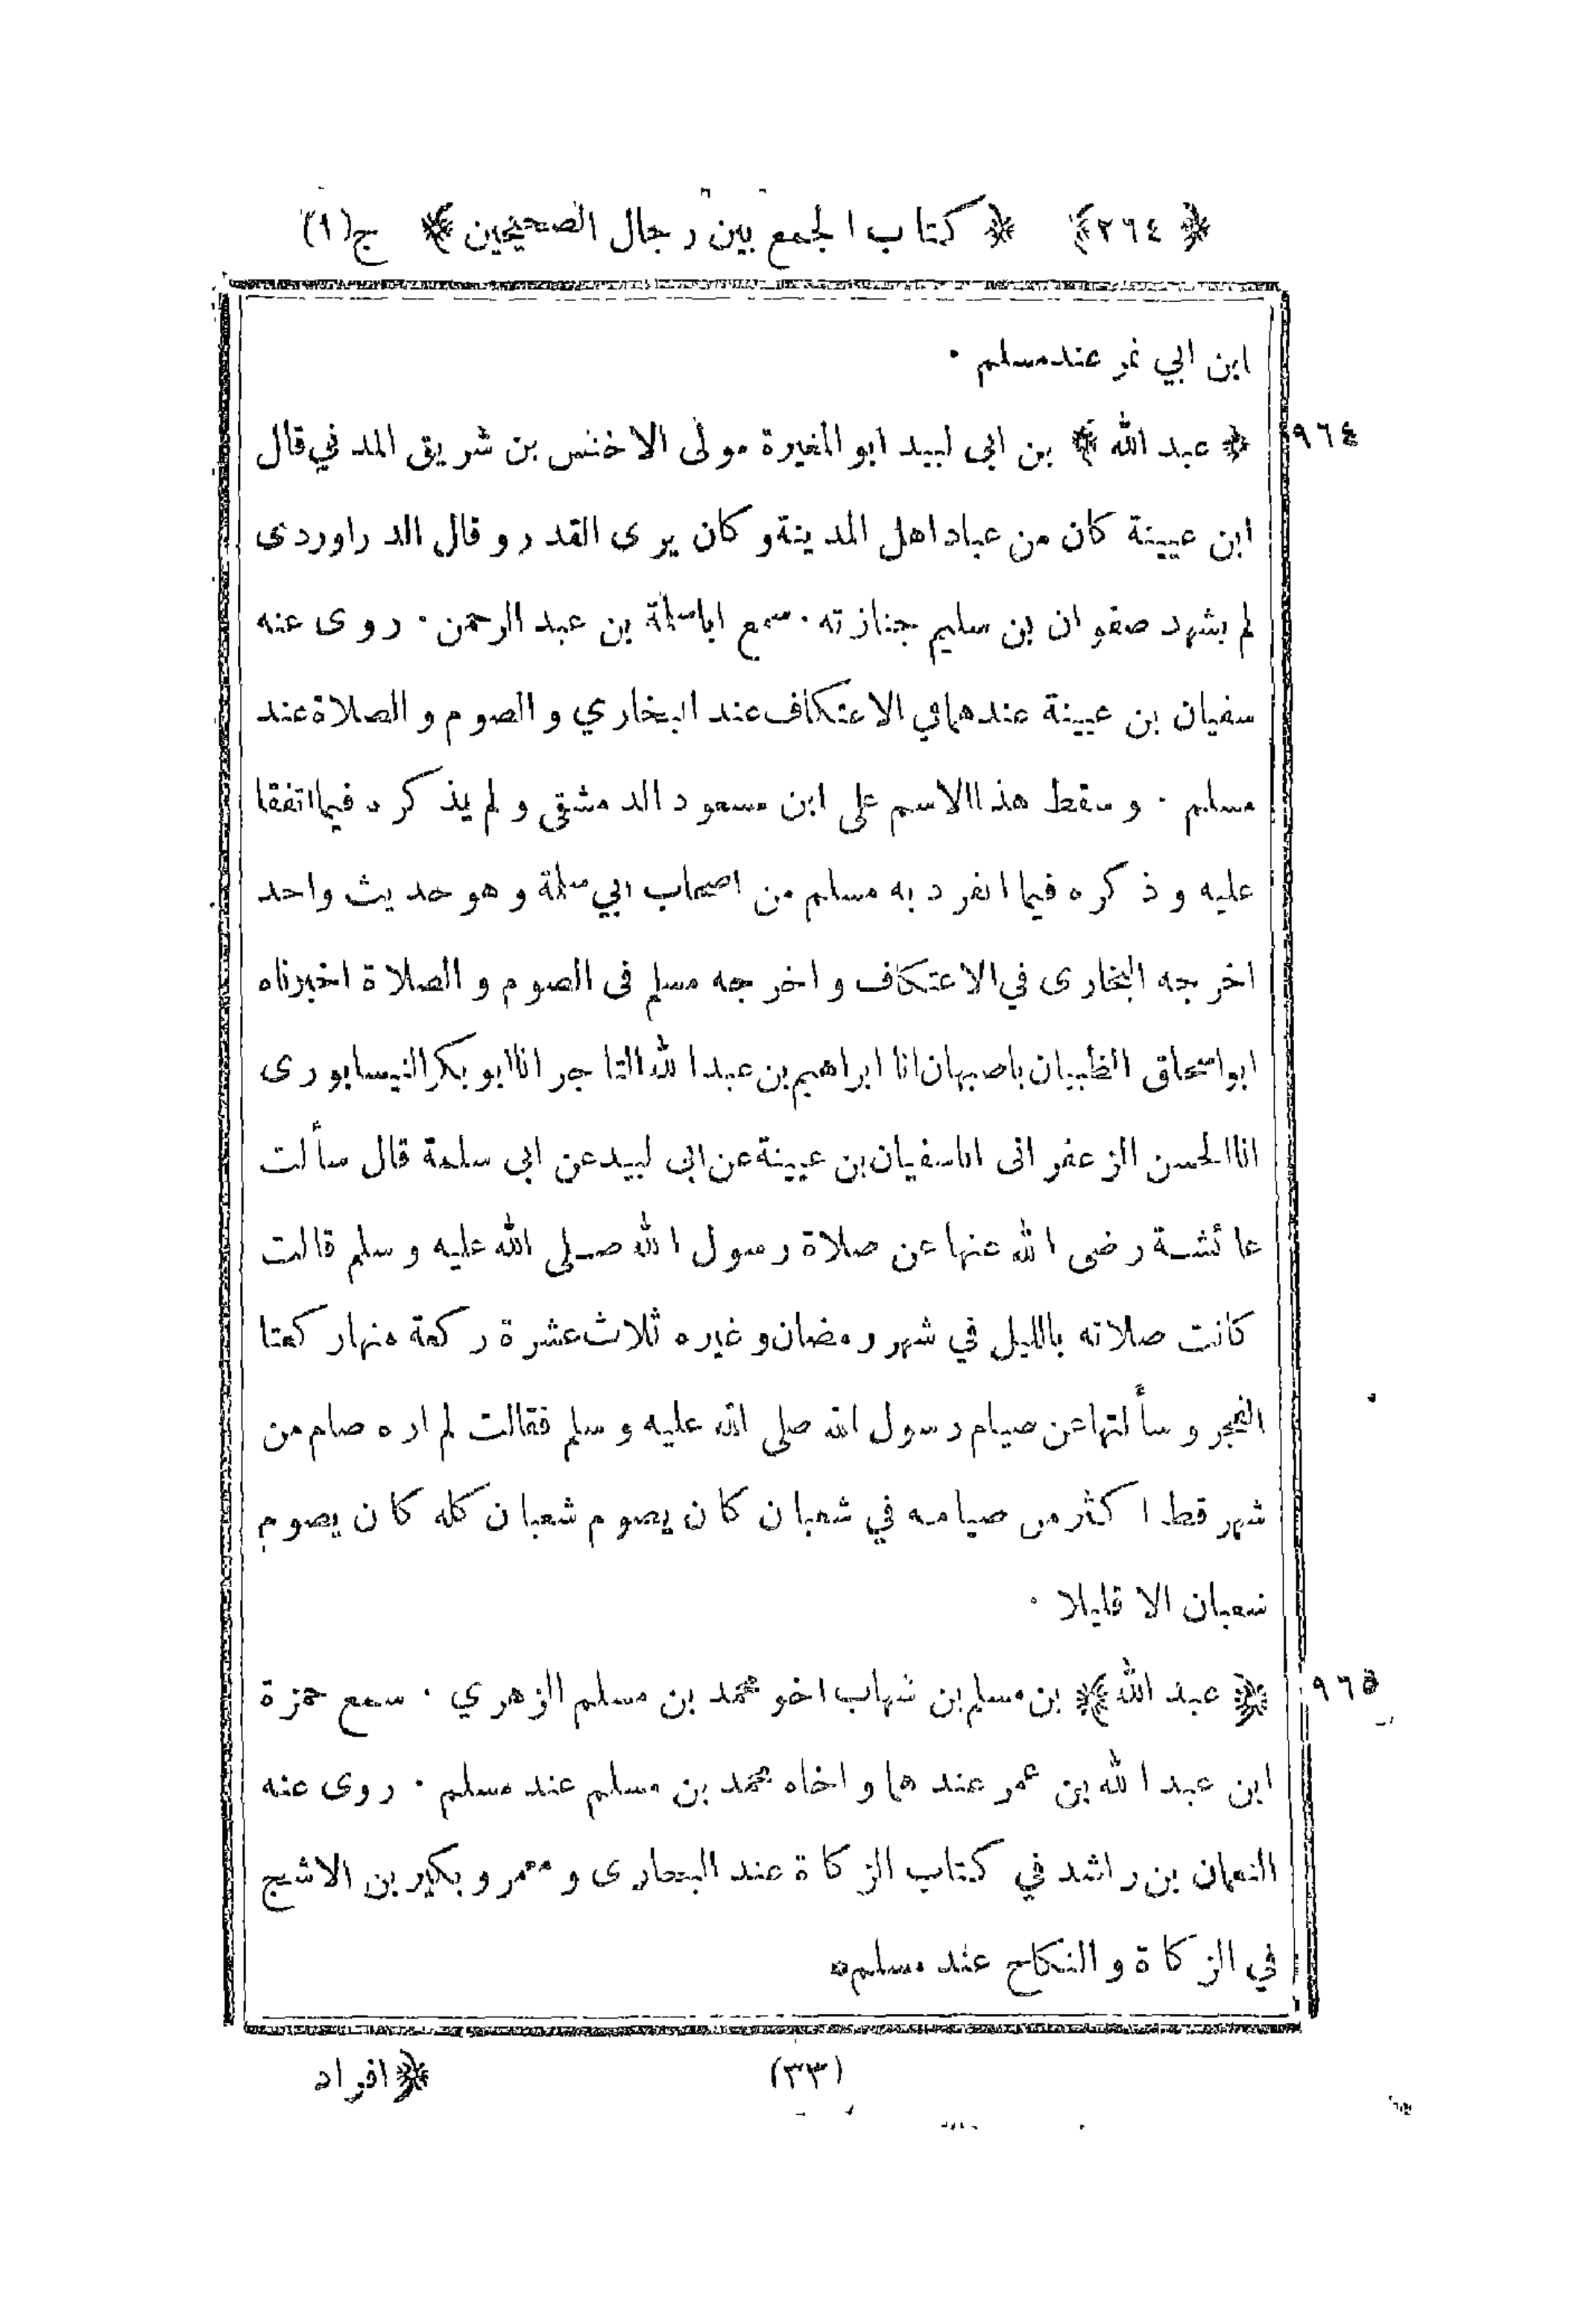 ﴿ ٢٦٤ ﴾ ﴿ كتاب الجمع بين رجال الصحيحين ﴾ ج (١)
ابن ابي نمر عند مسلم ٠
٩٦٤ ﴿ عبد الله ﴾ بن ابى لبيد ابو المغيرة مولى الاخنس بن شريق المدني قال
ابن عيينة كان من عباد اهل المدينة وكان يرى القدر و قال الدراوردى
لم يشهد صفوان بن سليم جنازته ٠ سمع اباسلمة بن عبد الرحمن ٠ روى عنه
سفيان بن عيينة عندهما في الاعتكاف عند البخاري و الصوم و الصلاة عند
مسلم ٠ و سقط هذا الاسم على ابن مسعود الدمشقى و لم يذكره فيما اتفقا
عليه و ذكره فيما انفرد به مسلم من اصحاب ابي سلمة و هو حديث واحد
اخرجه البخارى في الاعتكاف و اخرجه مسلم فى الصوم و الصلاة اخبرناه
ابو اسحاق الظبيان باصبهان انا ابراهيم بن عبد الله التاجر انا ابو بكر النيسابورى
انا الحسن الزعفرانى انا سفيان بن عيينة عن ابى لبيد عن ابى سلمة قال سألت
عائشة رضى الله عنها عن صلاة رسول الله صلى الله عليه و سلم قالت
كانت صلاته بالليل في شهر رمضان و غيره ثلاث عشرة ركعة منها ركعتا
الفجر و سألتها عن صيام رسول الله صلى الله عليه و سلم فقالت لم اره صام من
شهر قط اكثر من صيامه في شعبان كان يصوم شعبان كله كان يصوم
شعبان الا قليلا ٠
٩٦٥ ﴿ عبد الله ﴾ بن مسلم بن شهاب اخو محمد بن مسلم الزهري ٠ سمع حمزة
ابن عبد الله بن عمر عندهما و اخاه محمد بن مسلم عند مسلم ٠ روى عنه
النعمان بن راشد في كتاب الزكاة عند البخارى و معمر و بكير بن الاشج
في الزكاة و النكاح عند مسلم ٥
(٣٣) ﴿ افراد